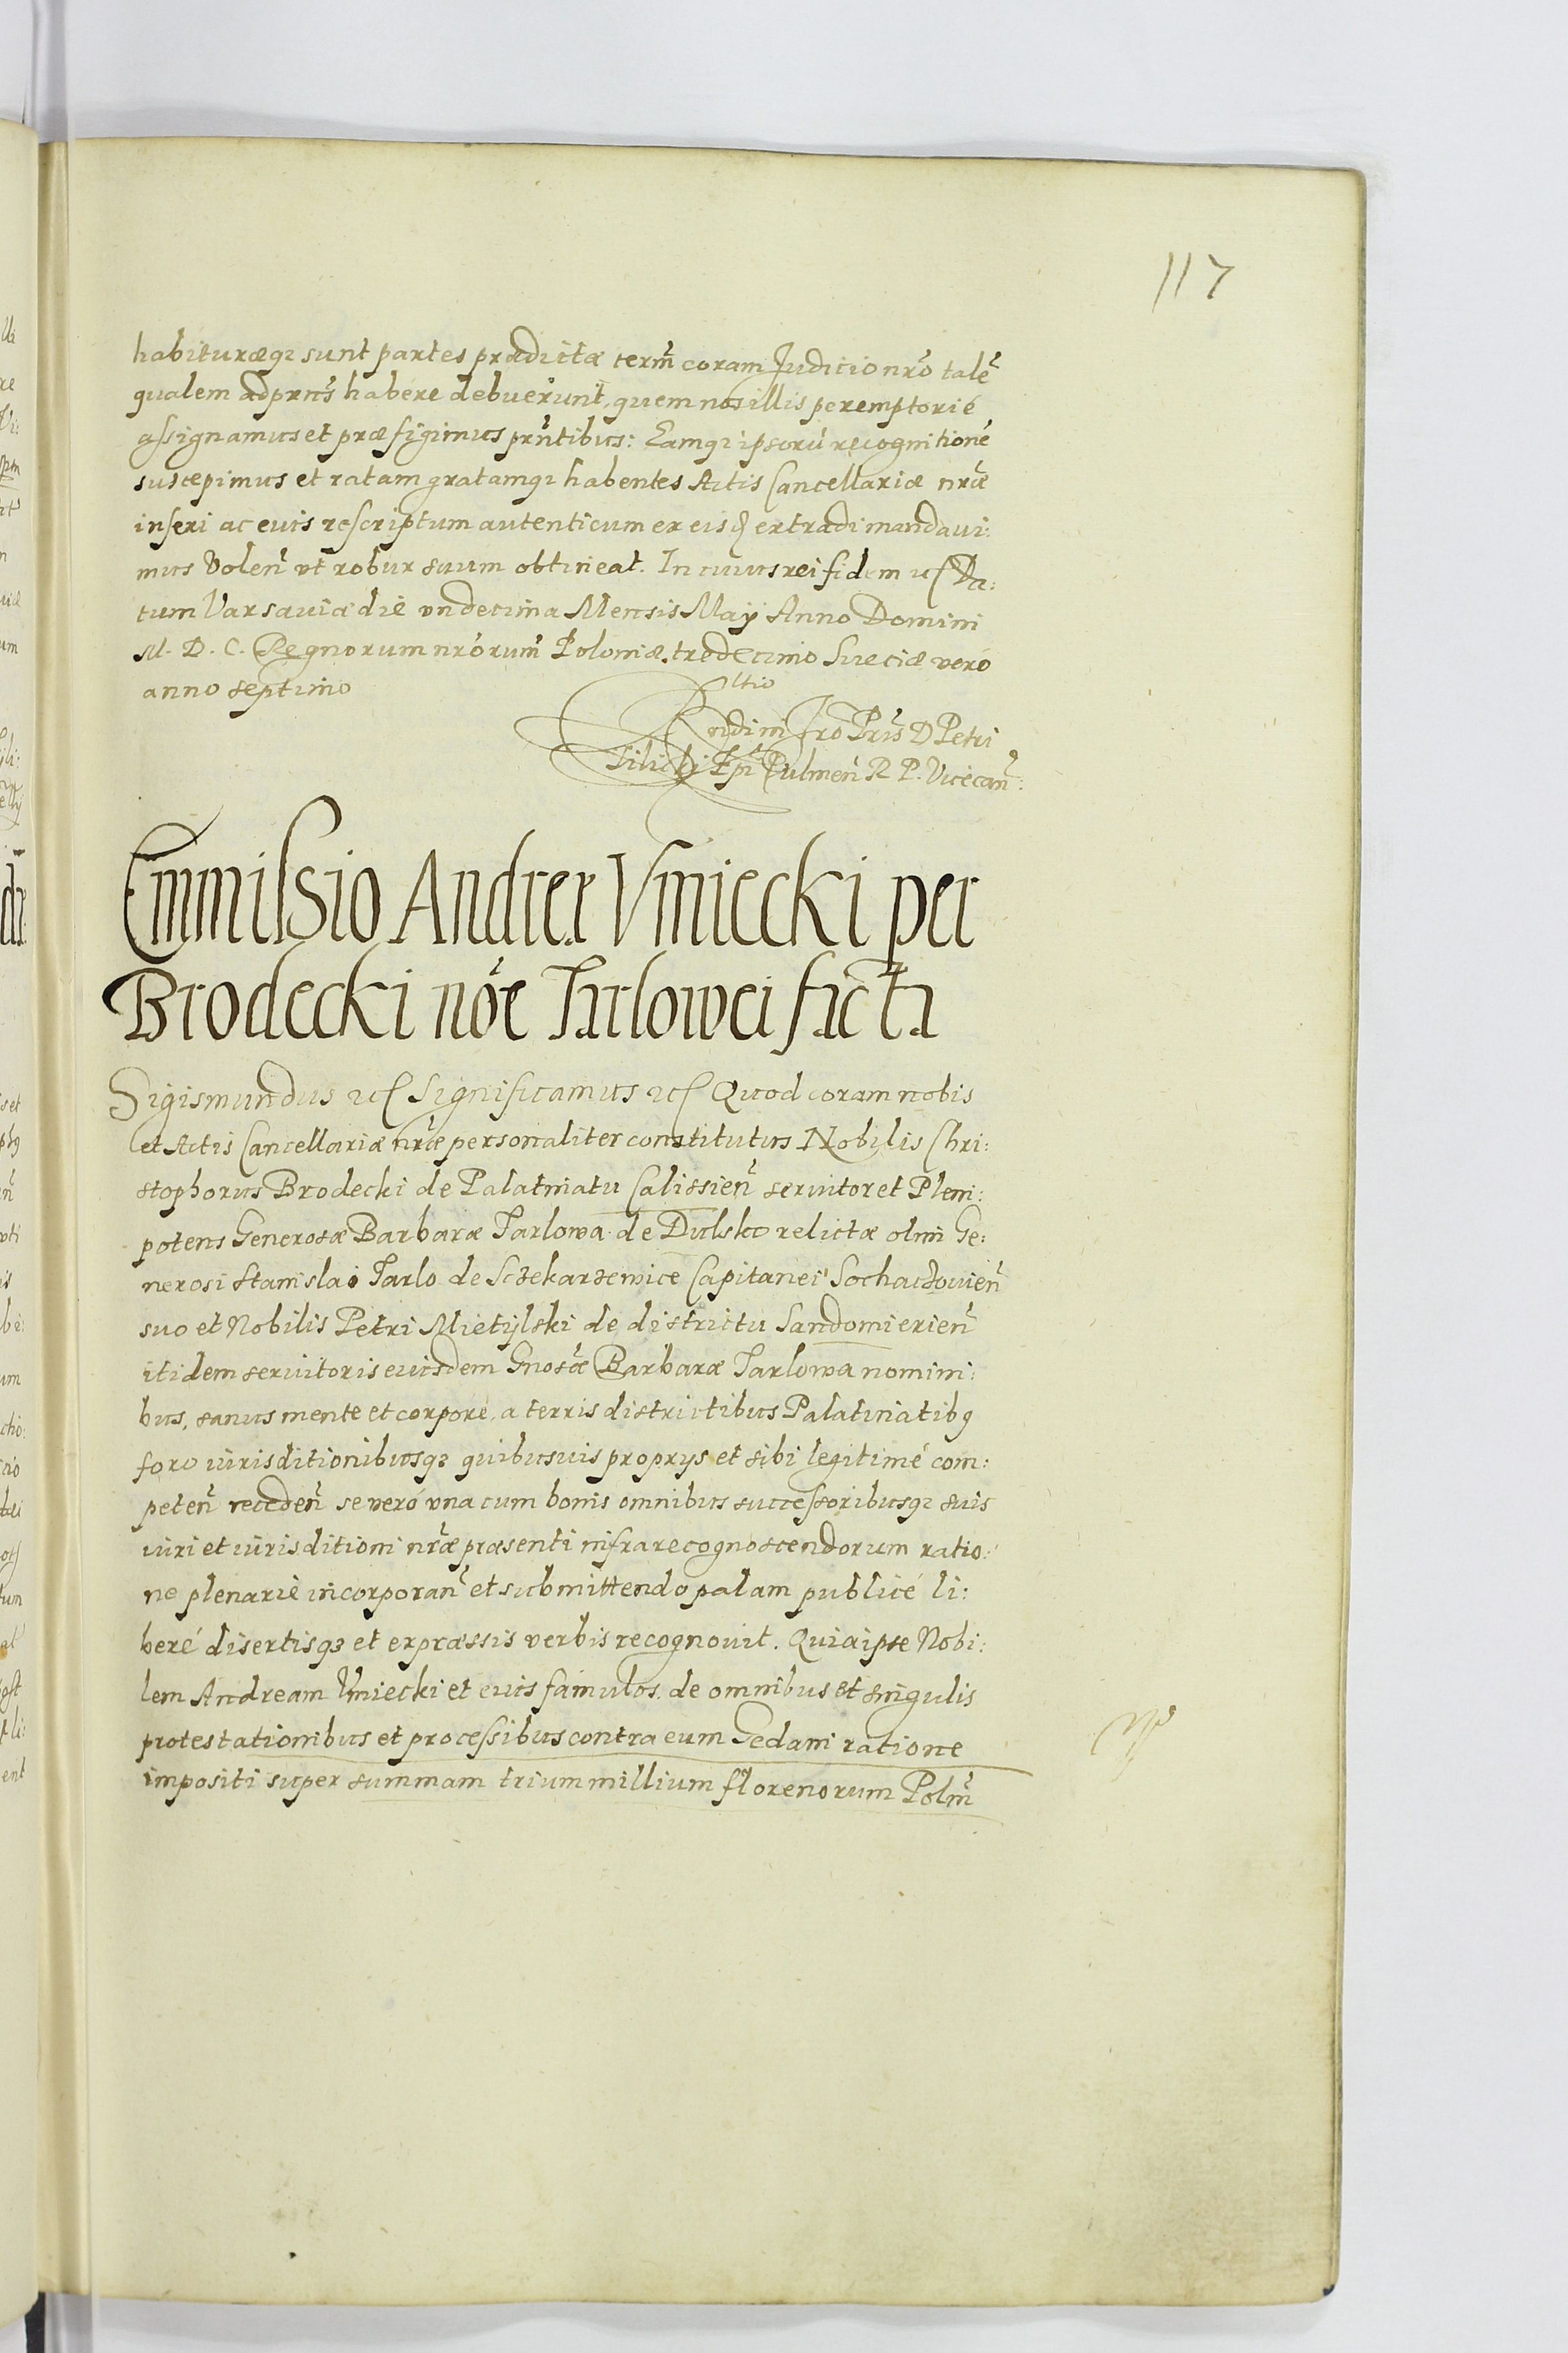 117
habituræq3 sunt partes prædictæ term̃ coram Juditio nr̃o talẽ
qualem ad prñs habere debuerunt, quem nos illis peremptorié
assignamus et præfigimus prñtibus: Eamq3 ipsorũ recognitioné
suscepimus et ratam gratamq3 habentes Actis Cancellariæ nr̃æ
inseri ac eius rescriptum autenticum ex eisd extradi mandaui:
mus Volen̄ vt robur suum obtineat. In cuius rei fidem etc Da:
tum Varsauiæ die vndecima Mensis Maÿ Anno Domini
M. D. C. Regnorum nr̃orum Poloniæ tredecimo Sueciæ veró
anno septimo
Rltio
ndi in Xro Pris D Petri
Tilicki Epi Culmen̄ R P. Vicecan̄:
Emmissio Andreæ Vmiecki per
Brodecki nõe Tarlowei facta
Sigismundus etc Significamus etc Quod coram nobis
et Actis Cancellariæ nr̃æ personaliter constitutus Nobilis Chri:
stophorus Brodecki de Palatinatu Calissien̄ seruitor et Pleni:
potens Generosæ Barbaræ Tarlowa de Dulsko relictæ olim Ge:
nerosi Stanislai Tarlo de Sczekarzewice Capitanei Sochaczouien̄
suo et Nobilis Petri Mietÿlski de districtu Sandomierien̄
itidem seruitoris eiusdem Gnosæ Barbaræ Tarlowa nomini:
bus, sanus mente et corpore, a terris districtibus Palatinatib9
foro iurisditionibusq3 quibusuis proprÿs et sibi legitimé com:
peten̄ receden̄ se veró vna cum bonis omnibus successoribusq3 suis
iuri et iurisditioni nr̃æ præsenti infra recognoscendorum ratio:
ne plenarié incorporan̄ et submittendo palam publicé li:
beré disertisq3 et expræssis verbis recognouit. Quia ipse Nobi:
lem Andream Vmiecki et eius famulos de omnibus et singulis
protestationibus et processibus contra eum Gedani ratione
impositi super summam trium millium florenorum Polm̄